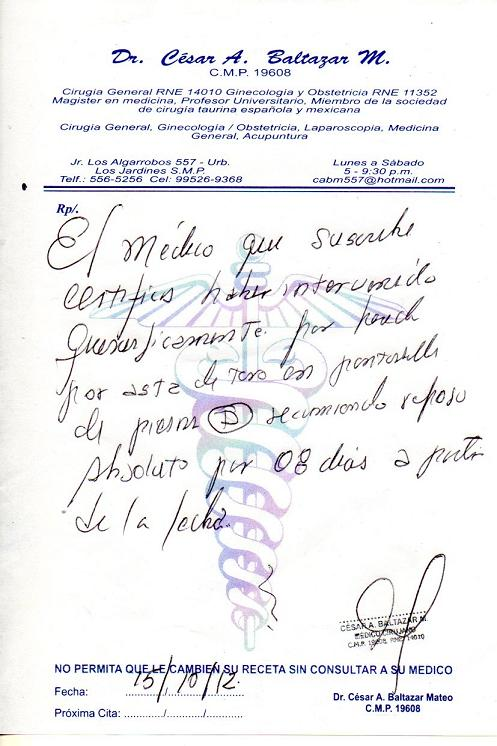 Dr. César A. Baltazar M.
C.M.P. 19608
Cirugía General RNE 14010 Ginecología y Obstetricia RNE 11352
Magister en medicina, Profesor Universitario, Miembro de la sociedad
de cirugía taurina española y mexicana
Cirugía General, Ginecología / Obstetricia, Laparoscopía, Medicina
General, Acupuntura
Jr. Los Algarrobos 557 - Urb.
Los Jardines S.M.P.
Telf.: 556-5256 Cel: 99526-9368
Lunes a Sábado
5 - 9:30 p.m.
cabm557@hotmail.com
Rp/.
El Médico que suscribe
certifica haber intervenido
Quirurgicamente por
por asta de toro en pantorrilla
de pierna D recomiendo reposo
Absoluto por 08 dias a partir
de la fecha.
CESAR A. BALTAZAR M.
MEDICO CIRUJANO
C.M.P. 19608 RNE 14010
NO PERMITA QUE LE CAMBIEN SU RECETA SIN CONSULTAR A SU MEDICO
Fecha: 15/10/12
Próxima Cita: ............/............/............
Dr. César A. Baltazar Mateo
C.M.P. 19608